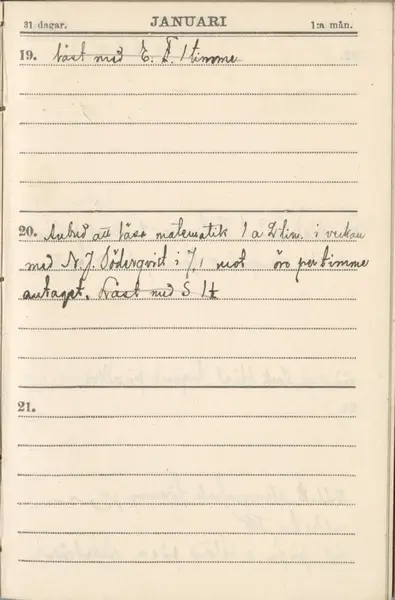 31 dagar. JANUARI 1:a mån.
19. Läst med E. F. 1 timme
20. Anbud att läsa matematik 1 a 2 tim. i veckan
med N. J. Söderqvist i 7,1 mot öre per timme
antaget. Läst med S 1 t
21.